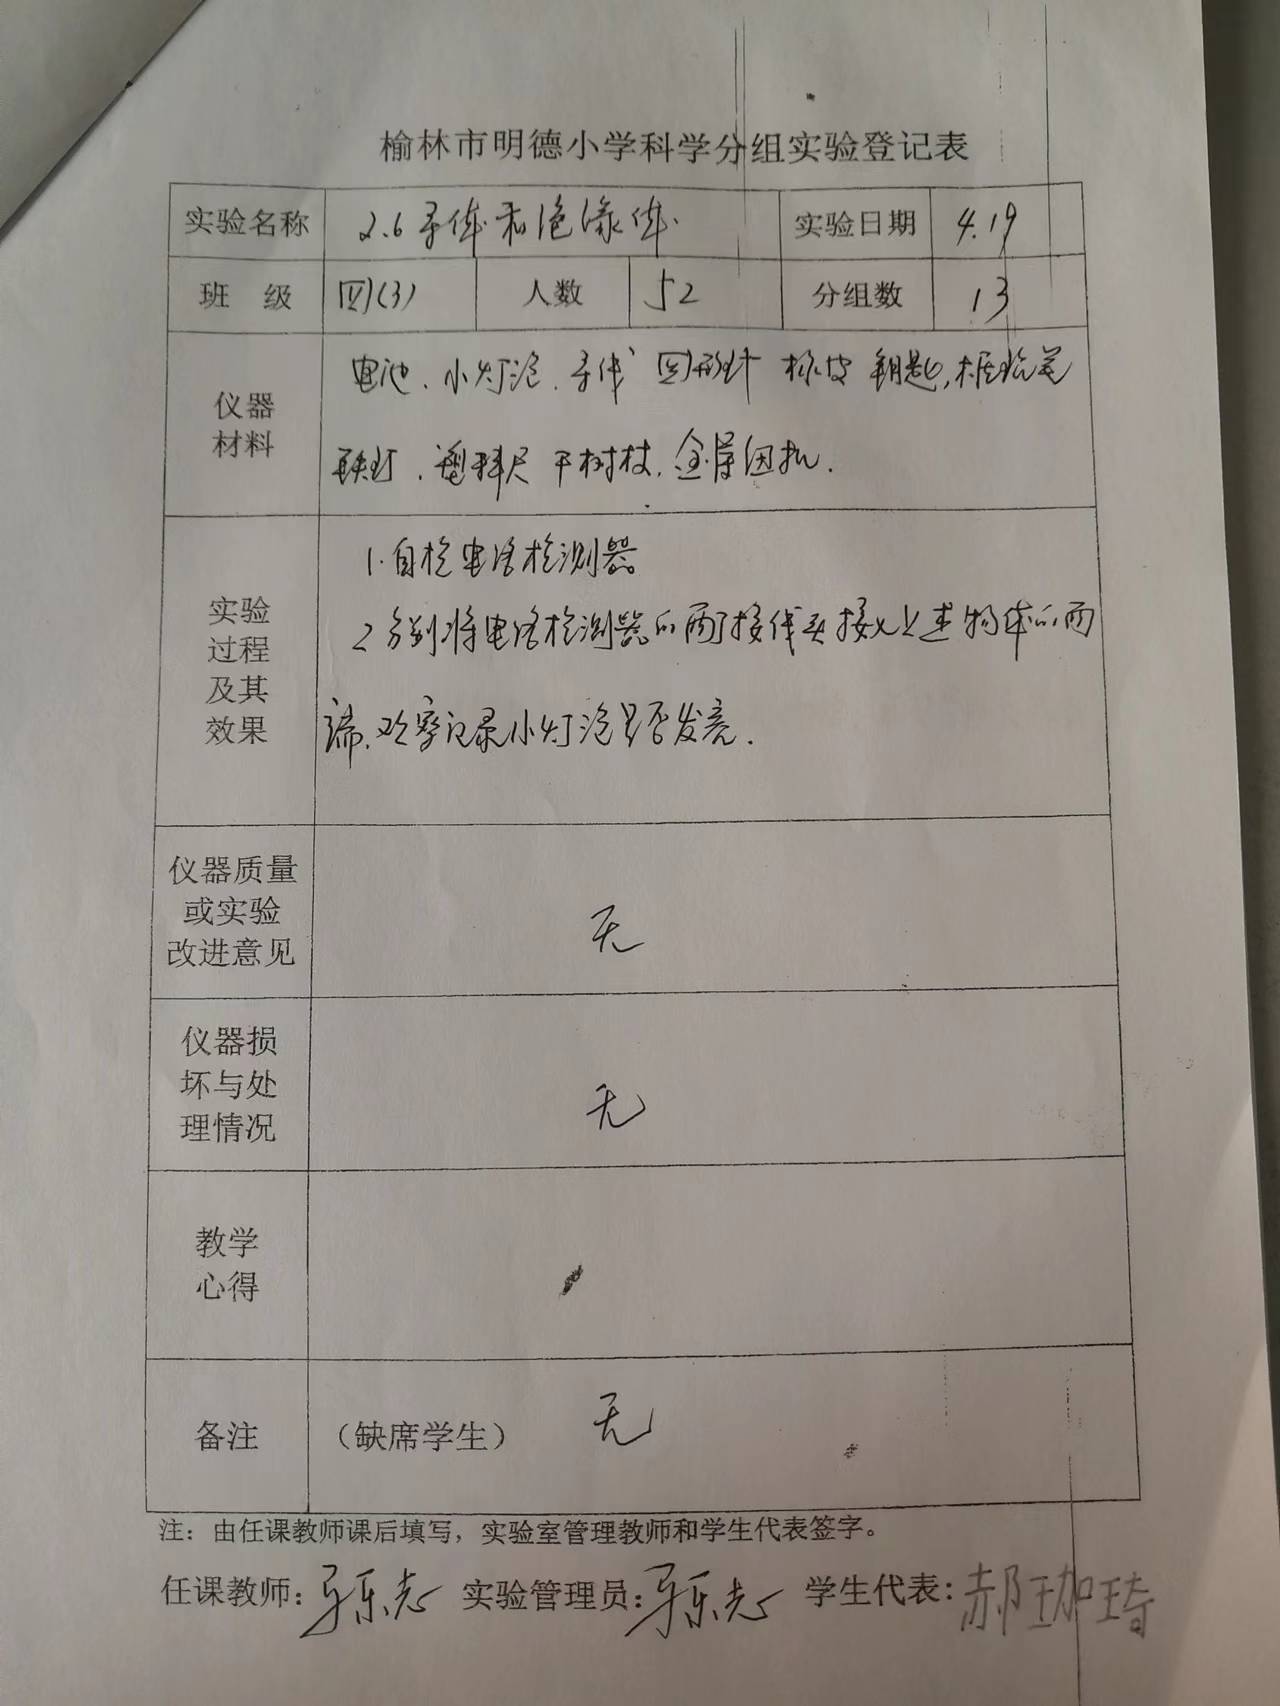 榆林市明德小学科学分组实验登记表
实验名称 2.6 导体和绝缘体. 实验日期 4.19
班 级 四(3) 人数 52 分组数 13
仪器材料 电池、小灯泡、导线 回形针 橡皮 钥匙,木铅笔
铁钉、塑料尺 干树枝,金属
实验过程及其效果 1.自检电路检测器
2 分别将电路检测器的两个接线头接入上述物体的两
端,观察记录小灯泡是否发亮.
仪器质量或实验改进意见 无
仪器损坏与处理情况 无
教学心得
备注 (缺席学生) 无
注:由任课教师课后填写,实验室管理教师和学生代表签字。
任课教师: 实验管理员: 学生代表:郝珈琦